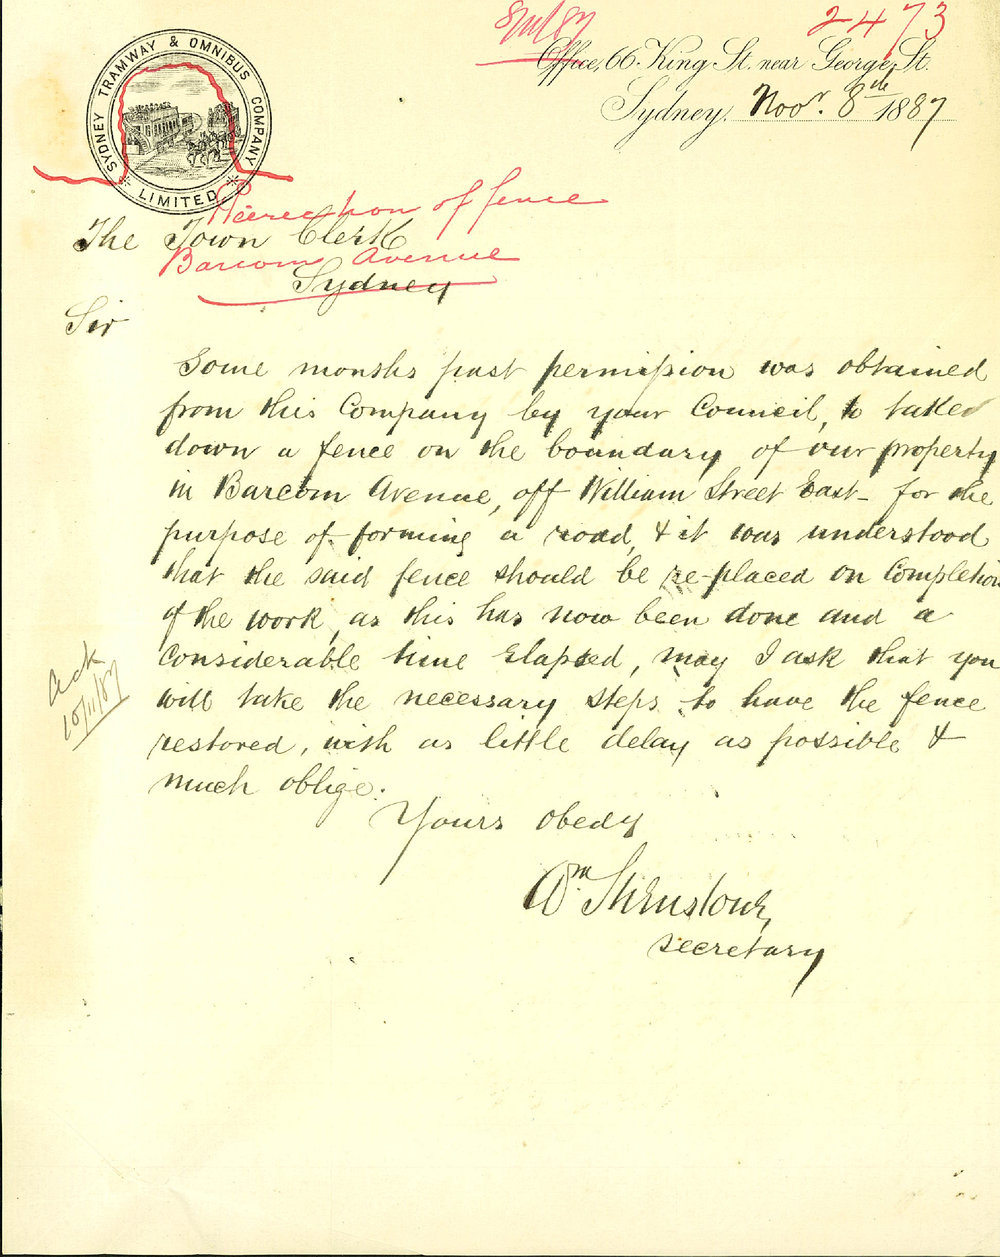 SYDNEY TRAMWAY & OMNIBUS COMPANY
LIMITED
2473
Office, 66 King St. near George St.
Sydney, Novr. 8th 1887
Re-erection of fence
Barcom Avenue
The Town Clerk
Sydney
Sir
Some months past permission was obtained
from this Company by your Council, to take
down a fence on the boundary of our property
in Barcom Avenue, off William Street East - for the
purpose of forming a road, & it was understood
that the said fence should be re-placed on Completion
of the work, as this has now been done and a
Considerable time Elapsed, may I ask that you
will take the necessary steps to have the fence
restored, with as little delay as possible &
much oblige.
Ack
10/11/87
Yours obedy
Wm
Secretary